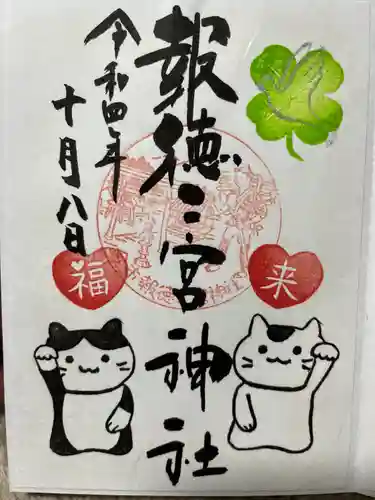 報徳二宮神社
令和四年
十月八日
福
来